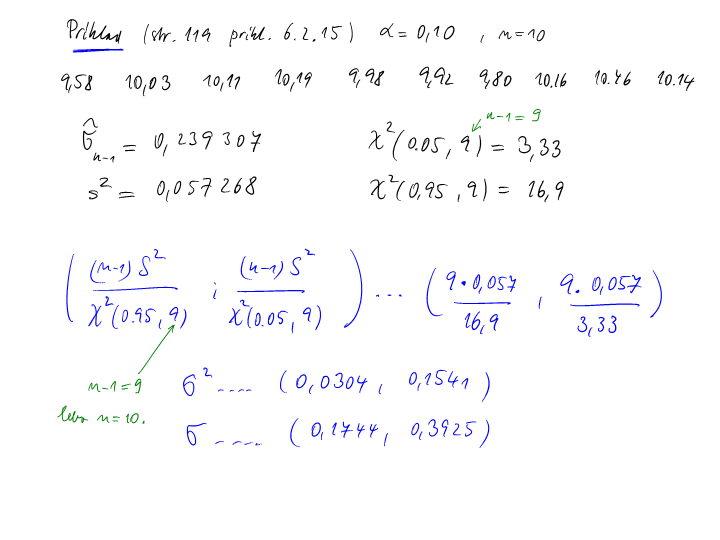 Príklad (str. 119 príkl. 6.2.15) α = 0,10 , n = 10
9,58 10,03 10,11 10,19 9,98 9,92 9,80 10.16 10.46 10.14
n-1 = 9
σ̂ₙ₋₁ = 0,239307 χ²(0.05, 9) = 3,33
s² = 0,057268 χ²(0,95, 9) = 16,9
( (n-1) S² / χ²(0.95, 9) ; (n-1) S² / χ²(0.05, 9) ) ... ( 9 · 0,057 / 16,9 , 9 . 0,057 / 3,33 )
n-1 = 9
lebo n = 10.
σ² .... (0,0304, 0,1541)
σ .... (0,1744, 0,3925)